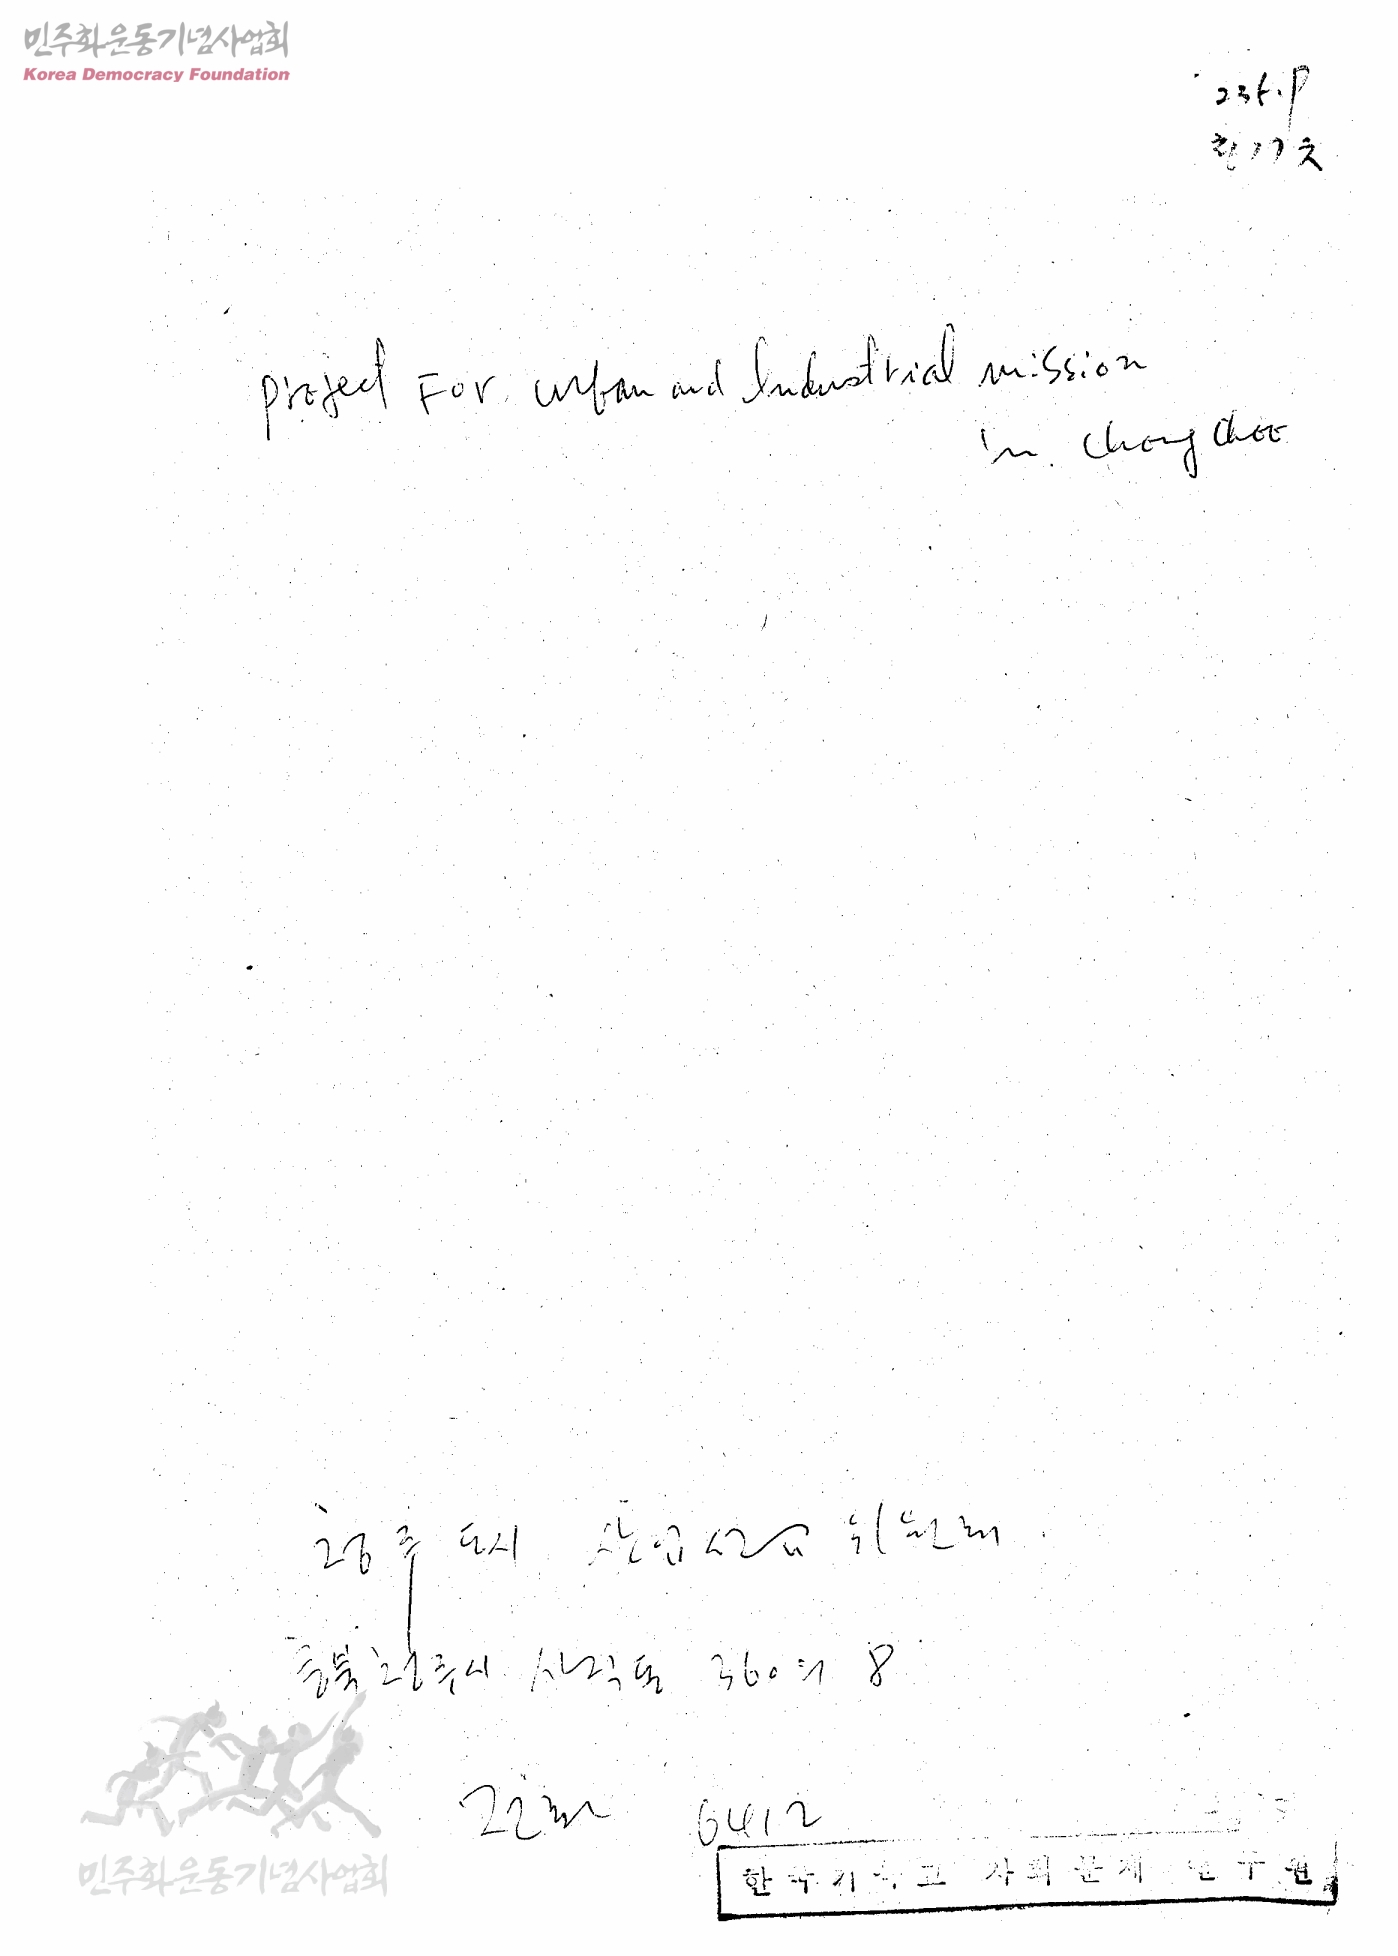 민주화운동기념사업회
Korea Democracy Foundation
project For urban and Industrial mission
in Chong Choo
청주 도시 산업선교 위원회
충북 청주시 사직동 360의 8
전화 6412
민주화운동기념사업회
한국기독교 사회문제 연구원